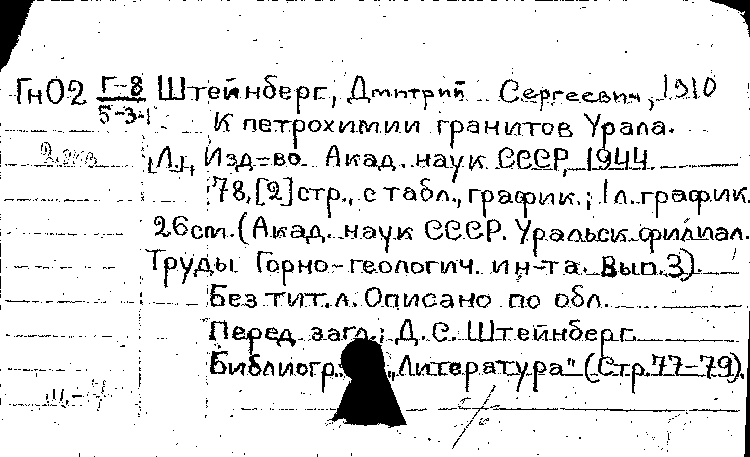 ГнО2 Г-8 Штейнберг, Дмитрий Сергеевич, 1910
5-3-1
К петрохимии гранитов Урала.
2 экз Л., Изд-во Акад. наук СССР, 1944
78,[2]стр., с табл., график.; 1л. график.
26cm. (Акад. наук СССР. Уральск. филиал.
Труды Горно-геологич. ин-та. Вып. 3).
Без тит. л. Описано по обл.
Перед загл.: Д. С. Штейнберг.
Библиогр.: "Литература" (Стр. 77-79).